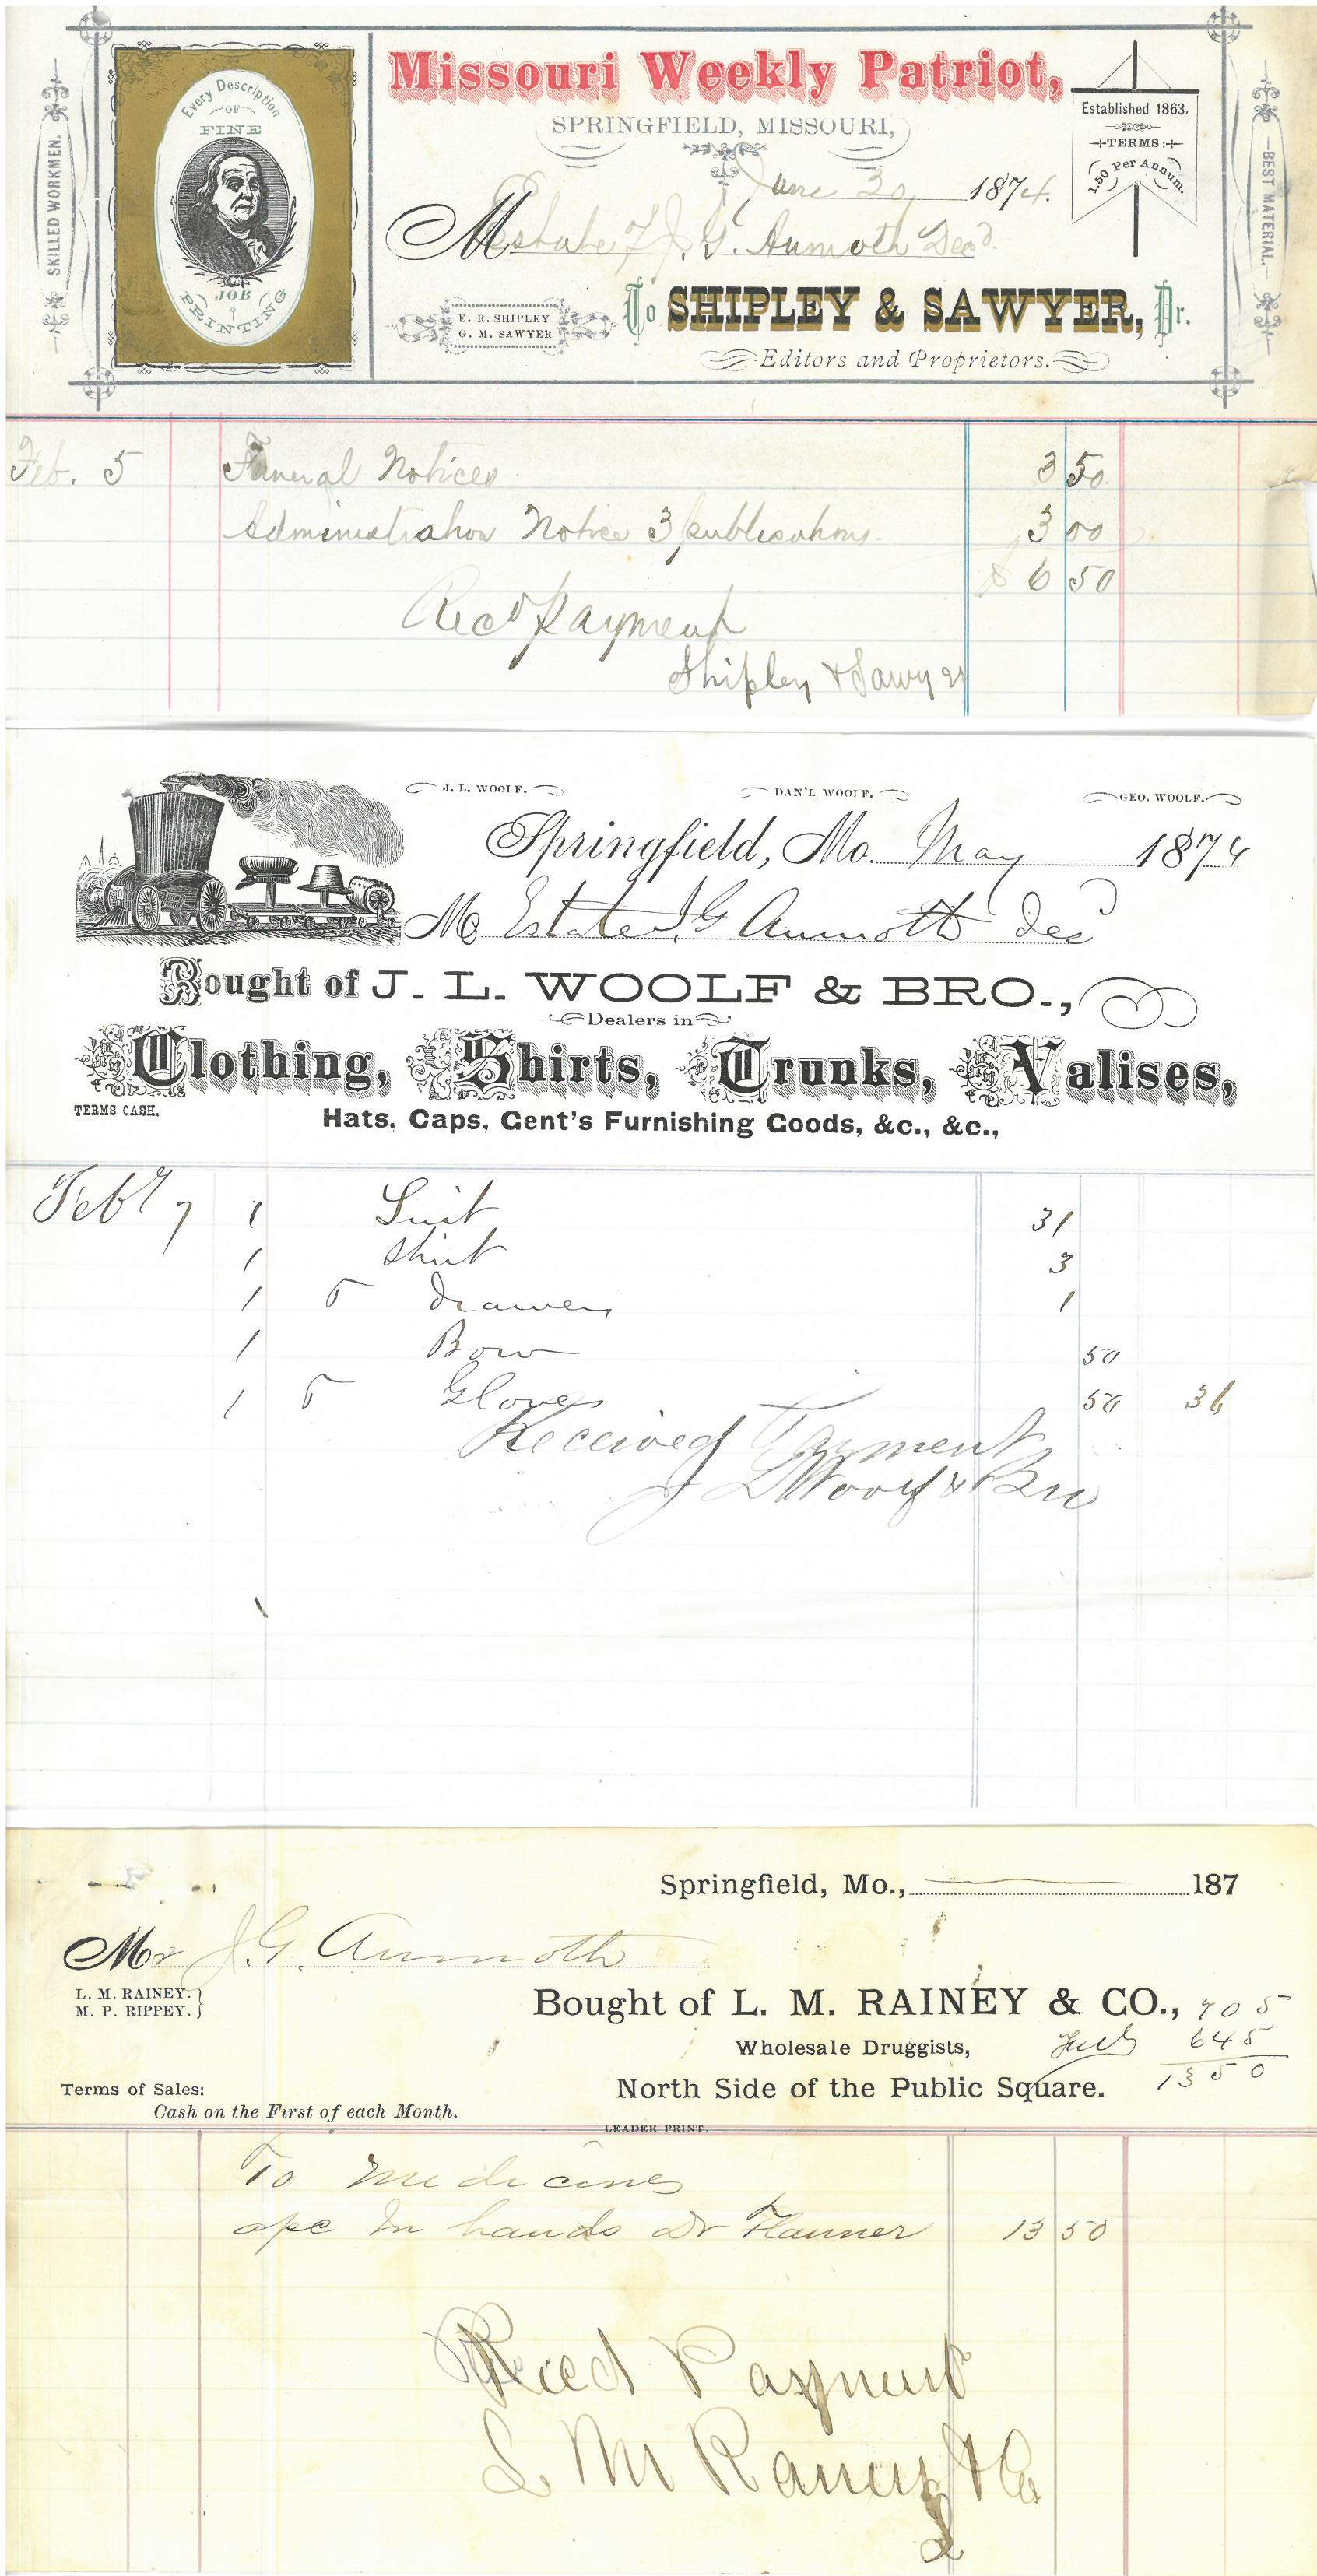 SKILLED WORKMEN.
Every Description
OF
FINE
JOB
PRINTING
Missouri Weekly Patriot,
SPRINGFIELD, MISSOURI,
Established 1863.
TERMS:
1.50 Per Annum.
BEST MATERIAL.
June 30 1874.
M Estate of J. G. Aumoth Decd.
E. R. SHIPLEY
G. M. SAWYER
To SHIPLEY & SAWYER, Dr.
Editors and Proprietors.
Feb. 5 Funeral Notices 3 50
Administration Notice 3 publications. 3 00
$ 6 50
Recd Payment
Shipley & Sawyer
J. L. WOOLF. DAN'L WOOLF. GEO. WOOLF.
Springfield, Mo. May 1874
M Estate J. G Aumoth Decd
Bought of J. L. WOOLF & BRO.,
Dealers in
Clothing, Shirts, Trunks, Valises,
TERMS CASH.
Hats, Caps, Gent's Furnishing Goods, &c., &c.,
Feby 7 1 Suit 31
1 Shirt 3
1 Drawers 1
1 Bow 50
1 Gloves 50 36
Received Payment
J L Woolf & Bro
Springfield, Mo., 187
Mr J. G. Aumoth
L. M. RAINEY.
M. P. RIPPEY.
Bought of L. M. RAINEY & CO., 705
Wholesale Druggists, 645
North Side of the Public Square. 1350
Terms of Sales:
Cash on the First of each Month.
LEADER PRINT.
To Medicines
apc In hands Dr Flanner 13 50
Recd Payment
L M Rainey & Co